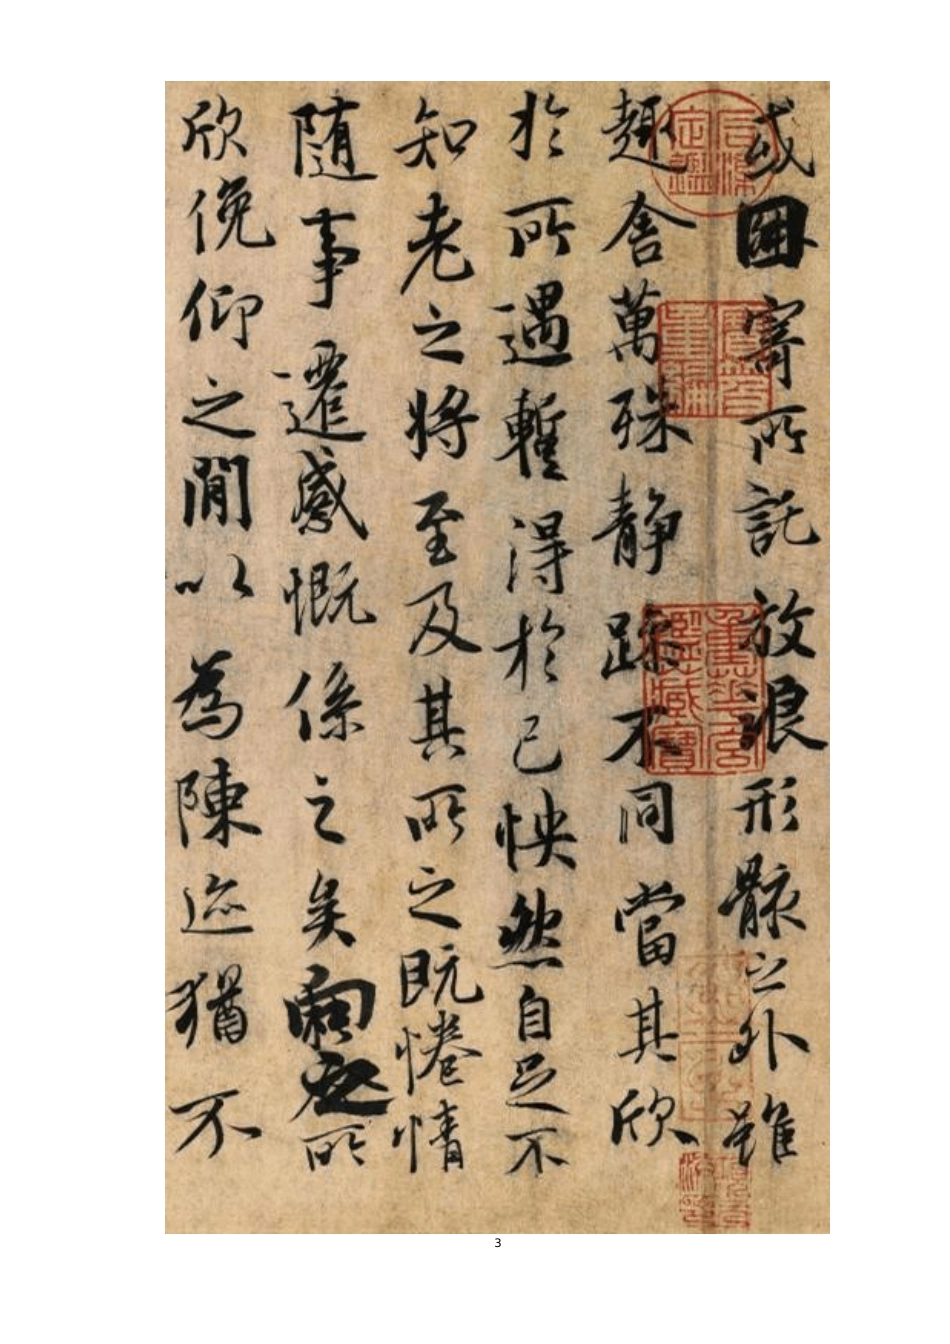 或因寄所託放浪形骸之外雖
趣舍萬殊靜躁不同當其欣
於所遇暫得於己怏然自足不
知老之將至及其所之既惓情
隨事遷感慨係之矣向之所
欣俛仰之閒以為陳迹猶不
3